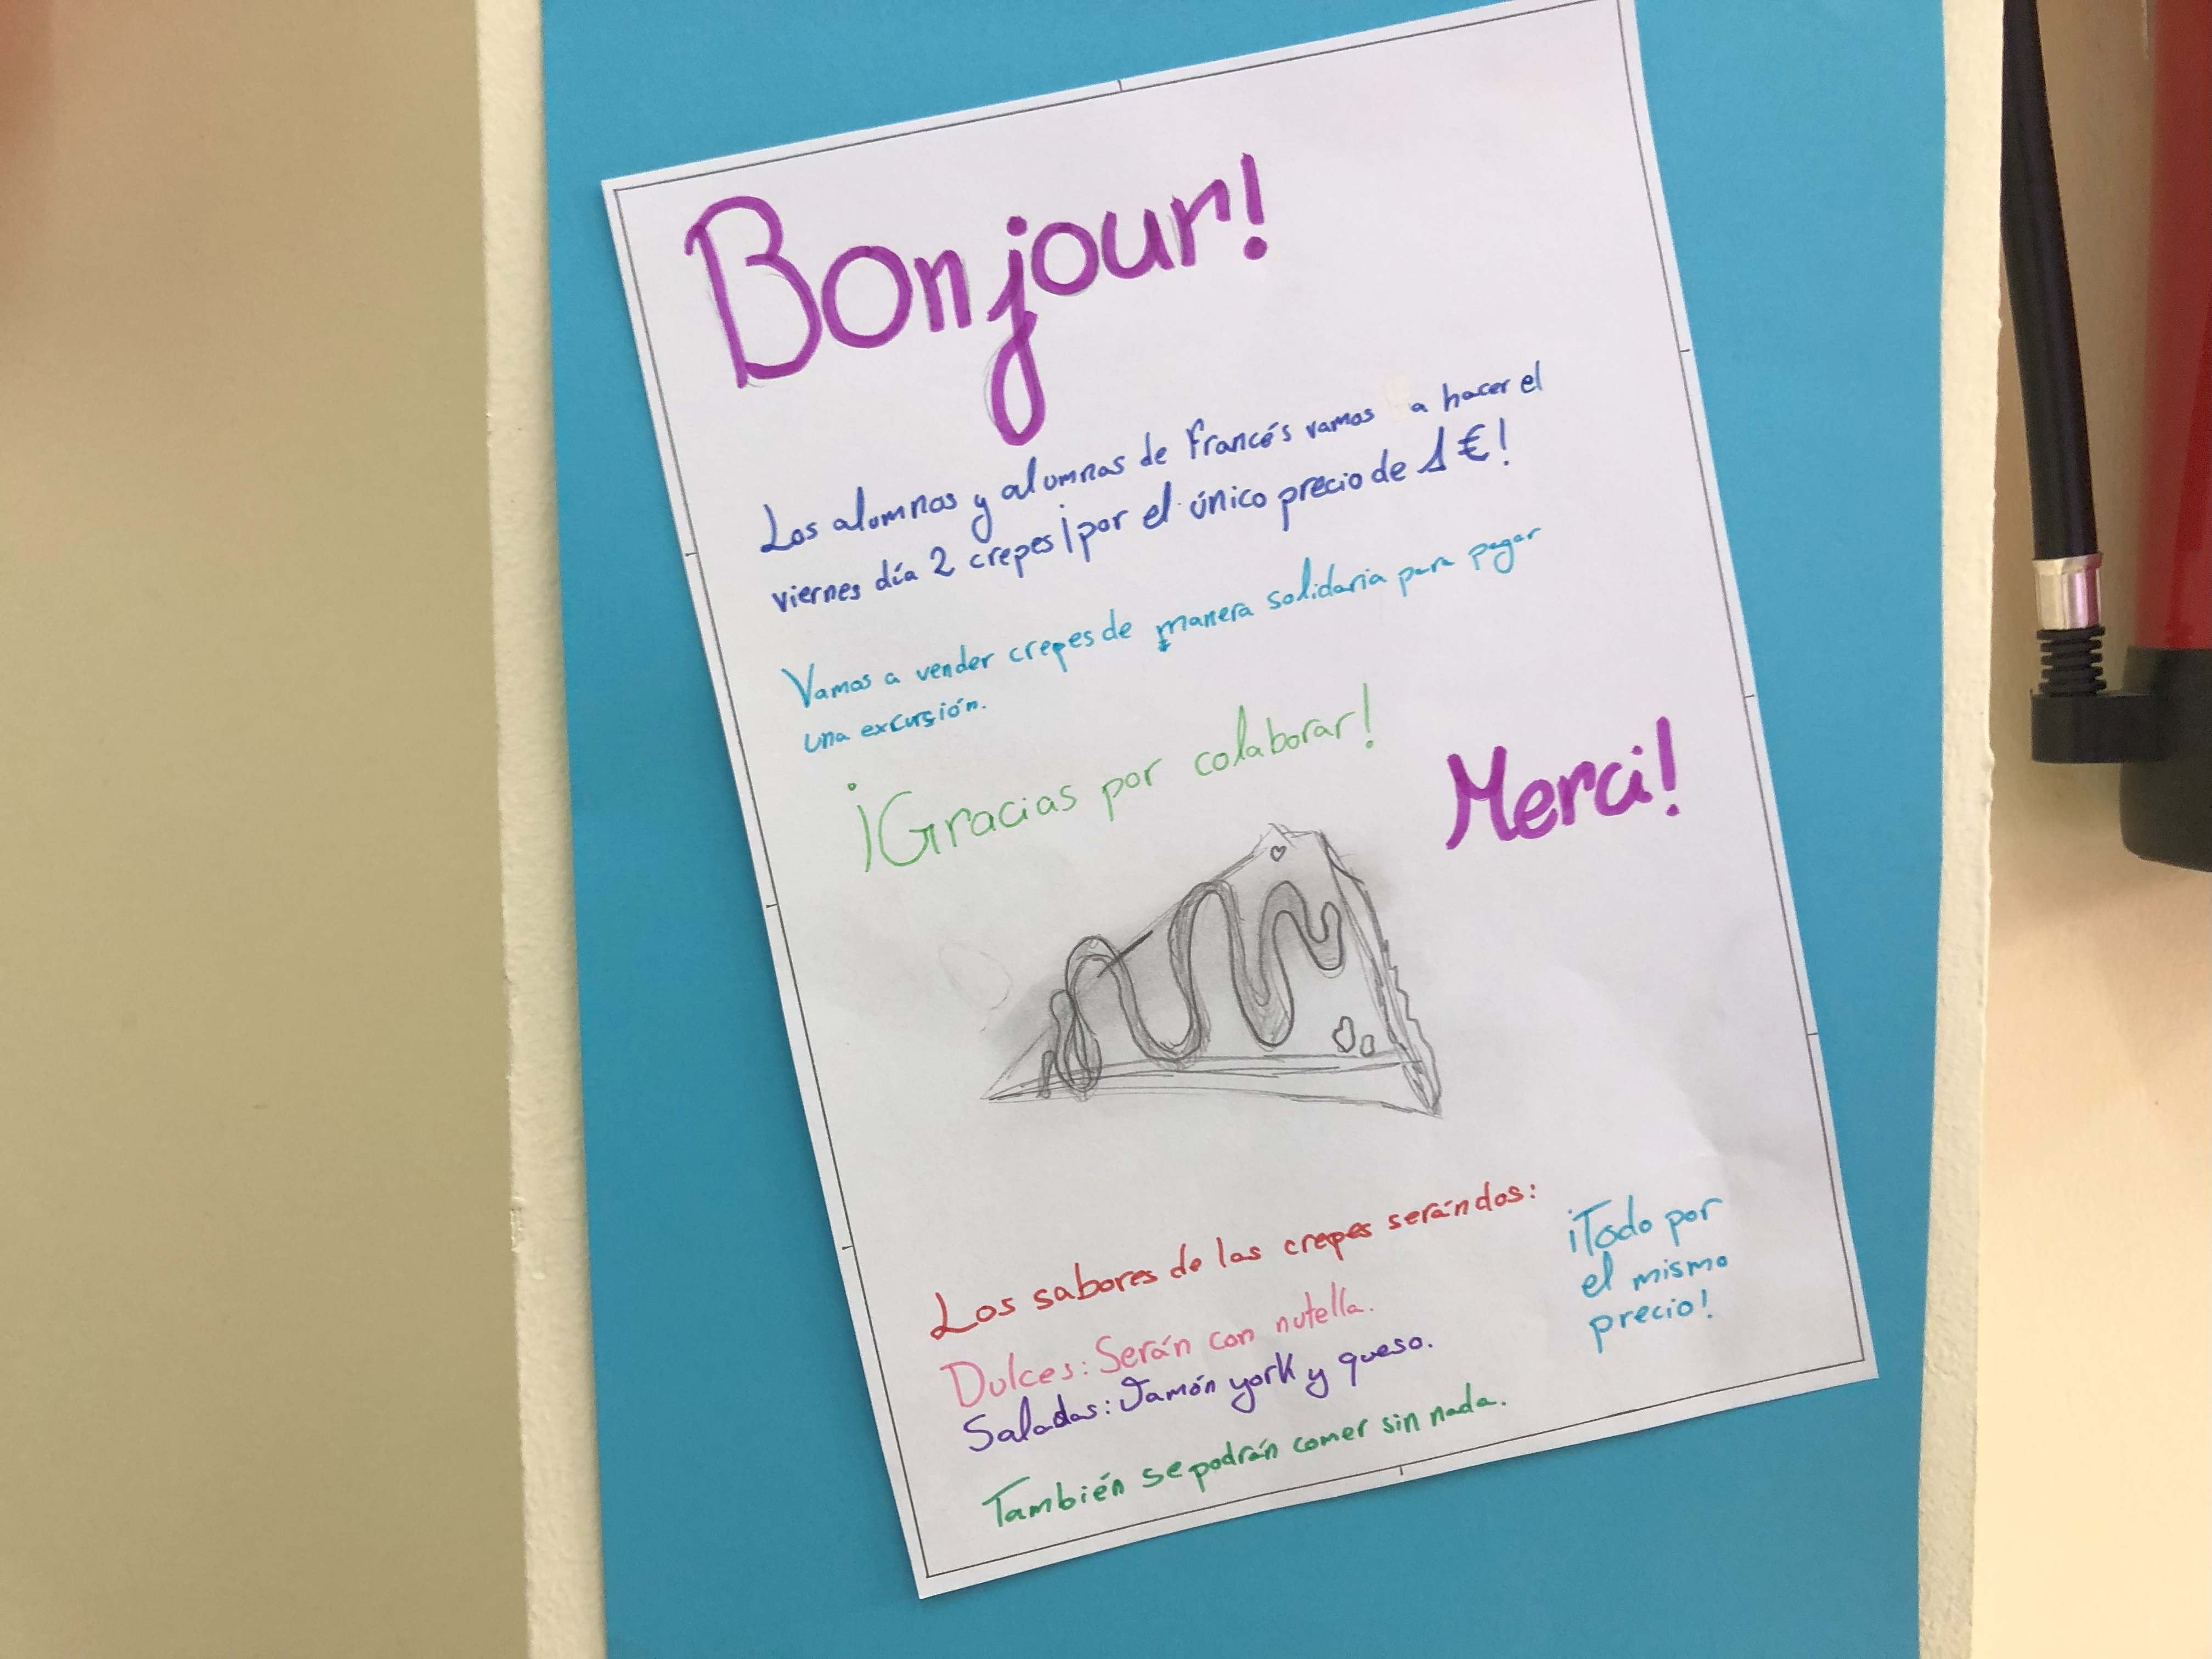 Bonjour!
Los alumnos y alumnas de Francés vamos a hacer el
viernes día 2 crepes ¡por el único precio de 1€!
Vamos a vender crepes de manera solidaria para pagar
una excursión.
¡Gracias por colaborar!
Merci!
Los sabores de las crepes serán dos:
Dulces: Serán con nutella.
Saladas: Jamón york y queso.
También se podrán comer sin nada.
¡Todo por
el mismo
precio!